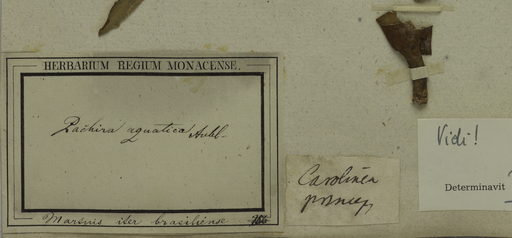 HERBARIUM REGIUM MONACENSE.
Pachira aquatica Aubl.
Martius iter brasiliense
Carolinea
princeps
Vidi!
Determinavit